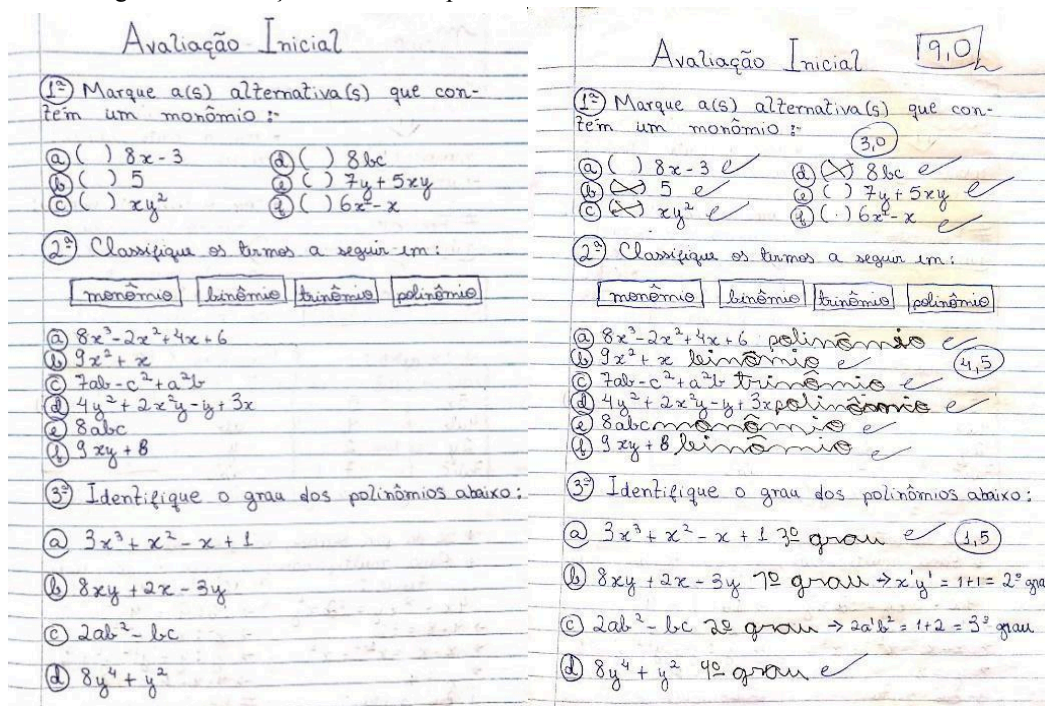 Avaliação Inicial
1ª Marque a(s) alternativa(s) que con-
tém um monômio :-
a ( ) 8x - 3
b ( ) 5
c ( ) xy²
d ( ) 8bc
e ( ) 7y + 5xy
f ( ) 6x² - x
2ª Classifique os termos a seguir em:
monômio binômio trinômio polinômio
a 8x³ - 2x² + 4x + 6
b 9x² + x
c 7ab - c² + a²b
d 4y² + 2x²y - y + 3x
e 8abc
f 9xy + 8
3ª Identifique o grau dos polinômios abaixo:
a 3x³ + x² - x + 1
b 8xy + 2x - 3y
c 2ab² - bc
d 8y⁴ + y²
Avaliação Inicial 9,0
1ª Marque a(s) alternativa(s) que con-
tém um monômio :-
3,0
a ( ) 8x - 3 c
b (X) 5 c
c (X) xy² c
d (X) 8bc c
e ( ) 7y + 5xy c
f ( ) 6x² - x c
2ª Classifique os termos a seguir em:
monômio binômio trinômio polinômio
a 8x³ - 2x² + 4x + 6 polinômio c
b 9x² + x binômio c 4,5
c 7ab - c² + a²b trinômio c
d 4y² + 2x²y - y + 3x polinômio c
e 8abc monômio c
f 9xy + 8 binômio c
3ª Identifique o grau dos polinômios abaixo:
a 3x³ + x² - x + 1 3º grau c 1,5
b 8xy + 2x - 3y 1º grau → x¹y¹ = 1+1 = 2º gra
c 2ab² - bc 2º grau → 2a¹b² = 1+2 = 3º grau
d 8y⁴ + y² 4º grau c